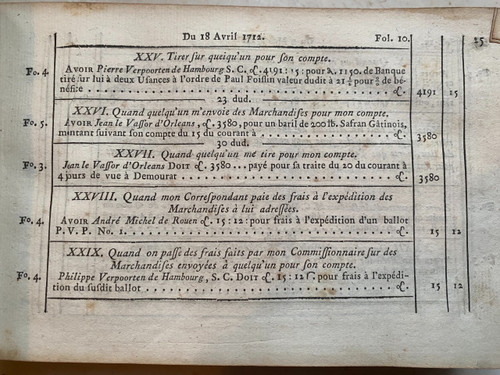 Du 18 Avril 1712. Fol. 10.
25
XXV. Tirer sur quelqu'un pour son compte.
Fo. 4 AVOIR Pierre Verpoorten de Hambourg S. C. ₶. 4191 : 15 : pour λ. 1150. de Banque
tiré sur lui à deux Usances à l'ordre de Paul Foissin valeur dudit à 21 ½ pour % de bé-
néfice . . . . . . . . . . . . . . . . . . . . . . . ₶. 4191 15
23 dud.
XXVI. Quand quelqu'un m'envoie des Marchandises pour mon compte.
Fo. 5. AVOIR Jean le Vassor d'Orleans, ₶. 3580, pour un baril de 200 lb. Safran Gâtinois,
montant suivant son compte du 15 du courant à . . . . . . . . . ₶. 3580
30 dud.
XXVII. Quand quelqu'un me tire pour mon compte.
Fo. 3. Jean le Vassor d'Orleans DOIT ₶. 3580 ... payé pour sa traite du 20 du courant à
4 jours de vue à Demourat . . . . . . . . . . . . . . . ₶. 3580
XXVIII. Quand mon Correspondant paie des frais à l'expédition des
Marchandises à lui adressées.
Fo. 4. AVOIR André Michel de Rouen ₶. 15 : 12 : pour frais à l'expédition d'un ballot
P. V. P. No. 1. . . . . . . . . . . . . . . . . . . . . ₶. 15 12
XXIX. Quand on passe des frais faits par mon Commissionnaire sur des
Marchandises envoyées à quelqu'un pour son compte.
Fo. 4. Philippe Verpoorten de Hambourg, S. C. DOIT ₶. 15 : 12 pour frais à l'expédi-
tion du susdit ballot . . . . . . . . . . . . . . . . . . ₶. 15 12